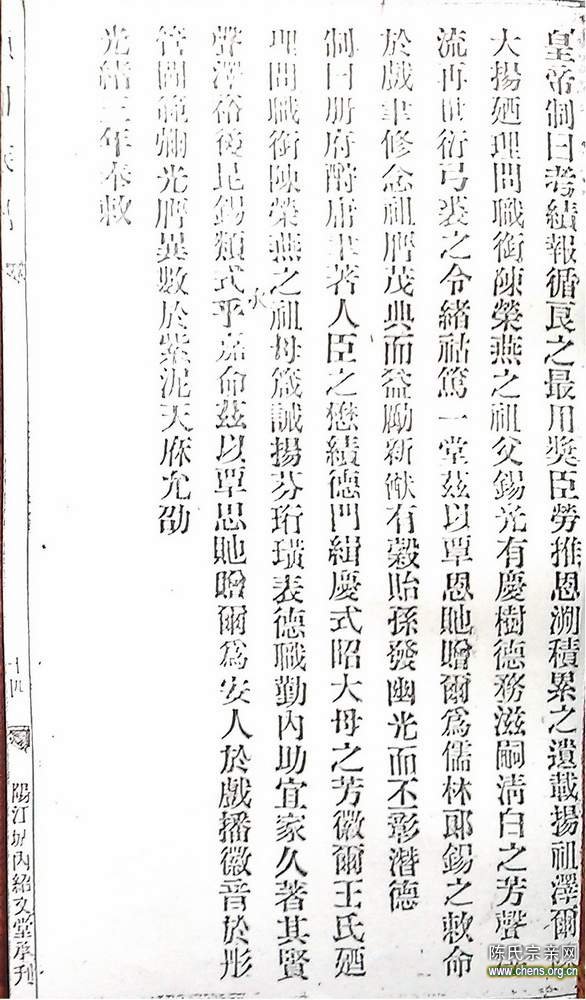 皇帝制曰考績報循良之最用奬臣勞推恩溯積累之遺載揚祖澤爾
大揚廼理問職銜陳榮燕之祖父錫光有慶樹德務滋嗣清白之芳聲
流再世衍弓裘之令緒祜篤一堂茲以覃恩貤贈爾爲儒林郎錫之敕命
於戲聿修念祖膺茂典而益勵新猷有穀貽孫發幽光而丕彰潛德
制曰册府酧庸聿著人臣之懋績德門緝慶式昭大母之芳徽爾王氏廼
理問職銜陳榮燕之祖母箴誡揚芬珩璜表德職勤內助宜家久著其賢
聲澤裕後昆錫類式乎嘉命茲以覃恩貤贈爾爲安人於戲播徽音於彤
管閫範彌光膺異數於紫泥天庥允劭
光緒三年奉敕
十四
陽江城內紹文堂承刊
陈氏宗亲网
www.chens.org.cn